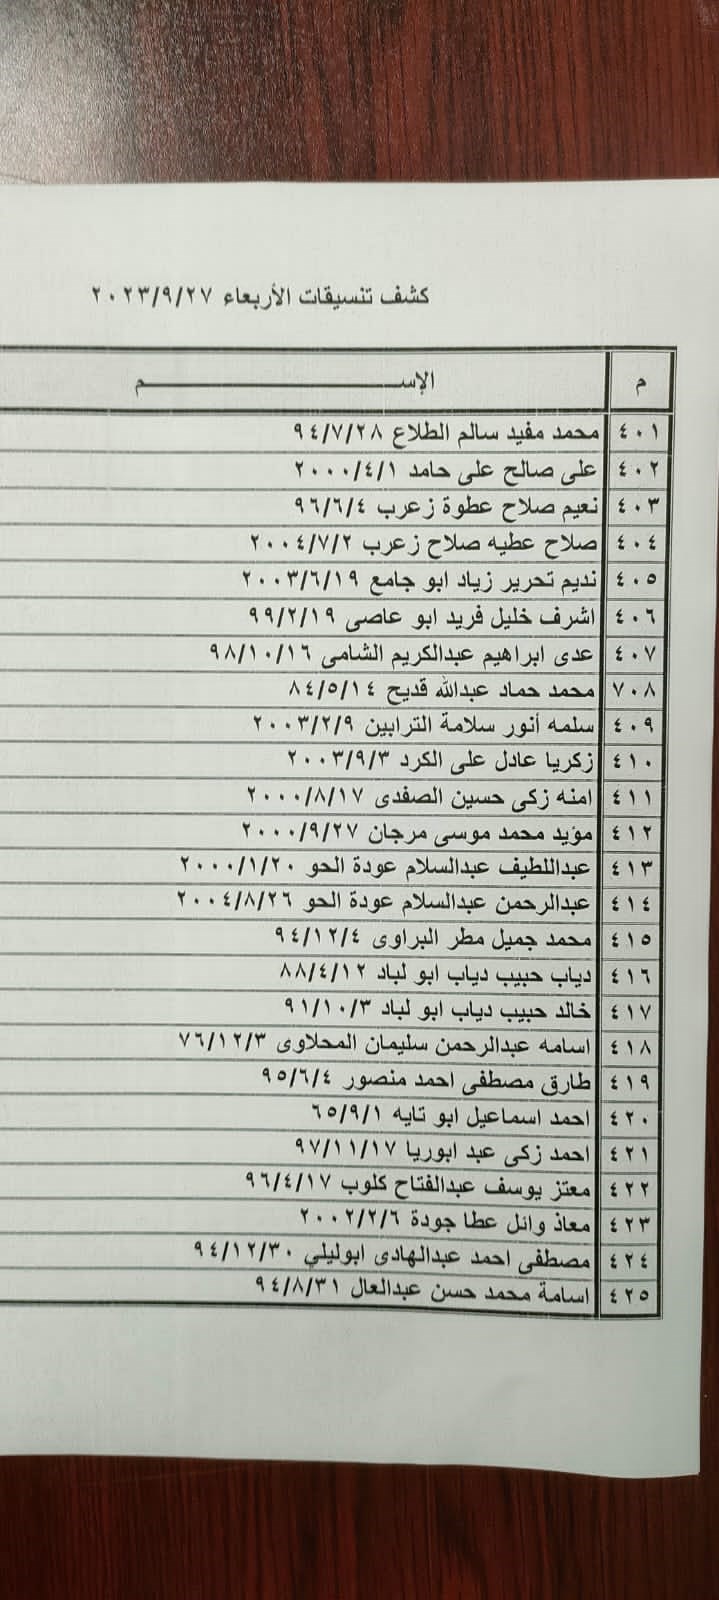 كشف تنسيقات الأربعاء ٢٠٢٣/٩/٢٧
م الإســـــــــــم
٤٠١ محمد مفيد سالم الطلاع ٩٤/٧/٢٨
٤٠٢ على صالح على حامد ٢٠٠٠/٤/١
٤٠٣ نعيم صلاح عطوة زعرب ٩٦/٦/٤
٤٠٤ صلاح عطيه صلاح زعرب ٢٠٠٤/٧/٢
٤٠٥ نديم تحرير زياد ابو جامع ٢٠٠٣/٦/١٩
٤٠٦ اشرف خليل فريد ابو عاصى ٩٩/٢/١٩
٤٠٧ عدى ابراهيم عبدالكريم الشامى ٩٨/١٠/١٦
٧٠٨ محمد حماد عبدالله قديح ٨٤/٥/١٤
٤٠٩ سلمه أنور سلامة الترابين ٢٠٠٣/٢/٩
٤١٠ زكريا عادل على الكرد ٢٠٠٣/٩/٣
٤١١ امنه زكى حسين الصفدى ٢٠٠٠/٨/١٧
٤١٢ مؤيد محمد موسى مرجان ٢٠٠٠/٩/٢٧
٤١٣ عبداللطيف عبدالسلام عودة الحو ٢٠٠٠/١/٢٠
٤١٤ عبدالرحمن عبدالسلام عودة الحو ٢٠٠٤/٨/٢٦
٤١٥ محمد جميل مطر البراوى ٩٤/١٢/٤
٤١٦ دياب حبيب دياب ابو لباد ٨٨/٤/١٢
٤١٧ خالد حبيب دياب ابو لباد ٩١/١٠/٣
٤١٨ اسامه عبدالرحمن سليمان المحلاوى ٧٦/١٢/٣
٤١٩ طارق مصطفى احمد منصور ٩٥/٦/٤
٤٢٠ احمد اسماعيل ابو تايه ٦٥/٩/١
٤٢١ احمد زكى عبد ابوريا ٩٧/١١/١٧
٤٢٢ معتز يوسف عبدالفتاح كلوب ٩٦/٤/١٧
٤٢٣ معاذ وائل عطا جودة ٢٠٠٢/٢/٦
٤٢٤ مصطفى احمد عبدالهادى ابوليلي ٩٤/١٢/٣٠
٤٢٥ اسامة محمد حسن عبدالعال ٩٤/٨/٣١